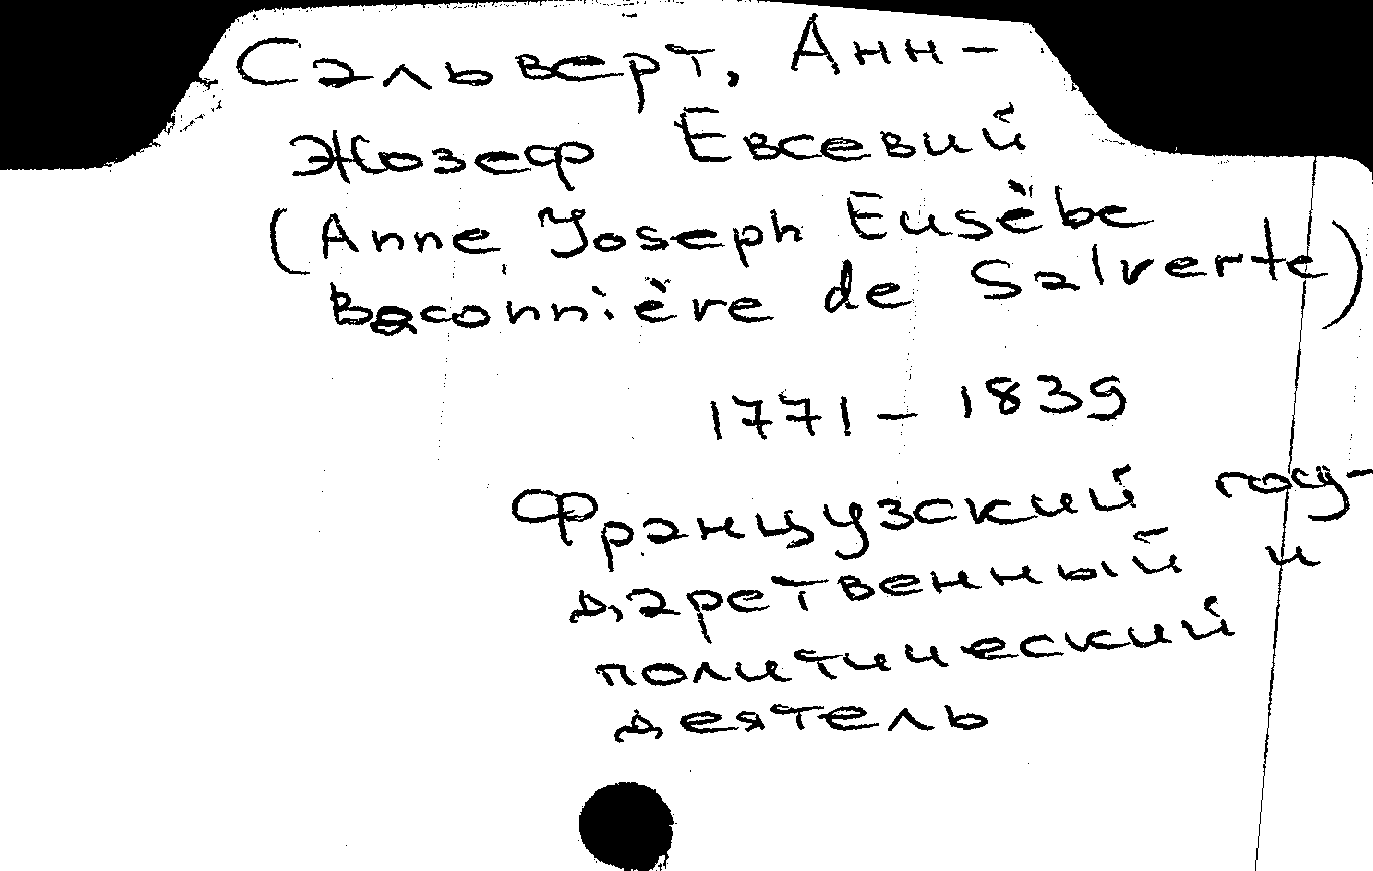 Сальверт, Анн-
Жозеф Евсевий
(Anne Joseph Eusèbe
Baconnière de Salverte)
1771 - 1839
Французский госу-
дарственный и
политический
деятель